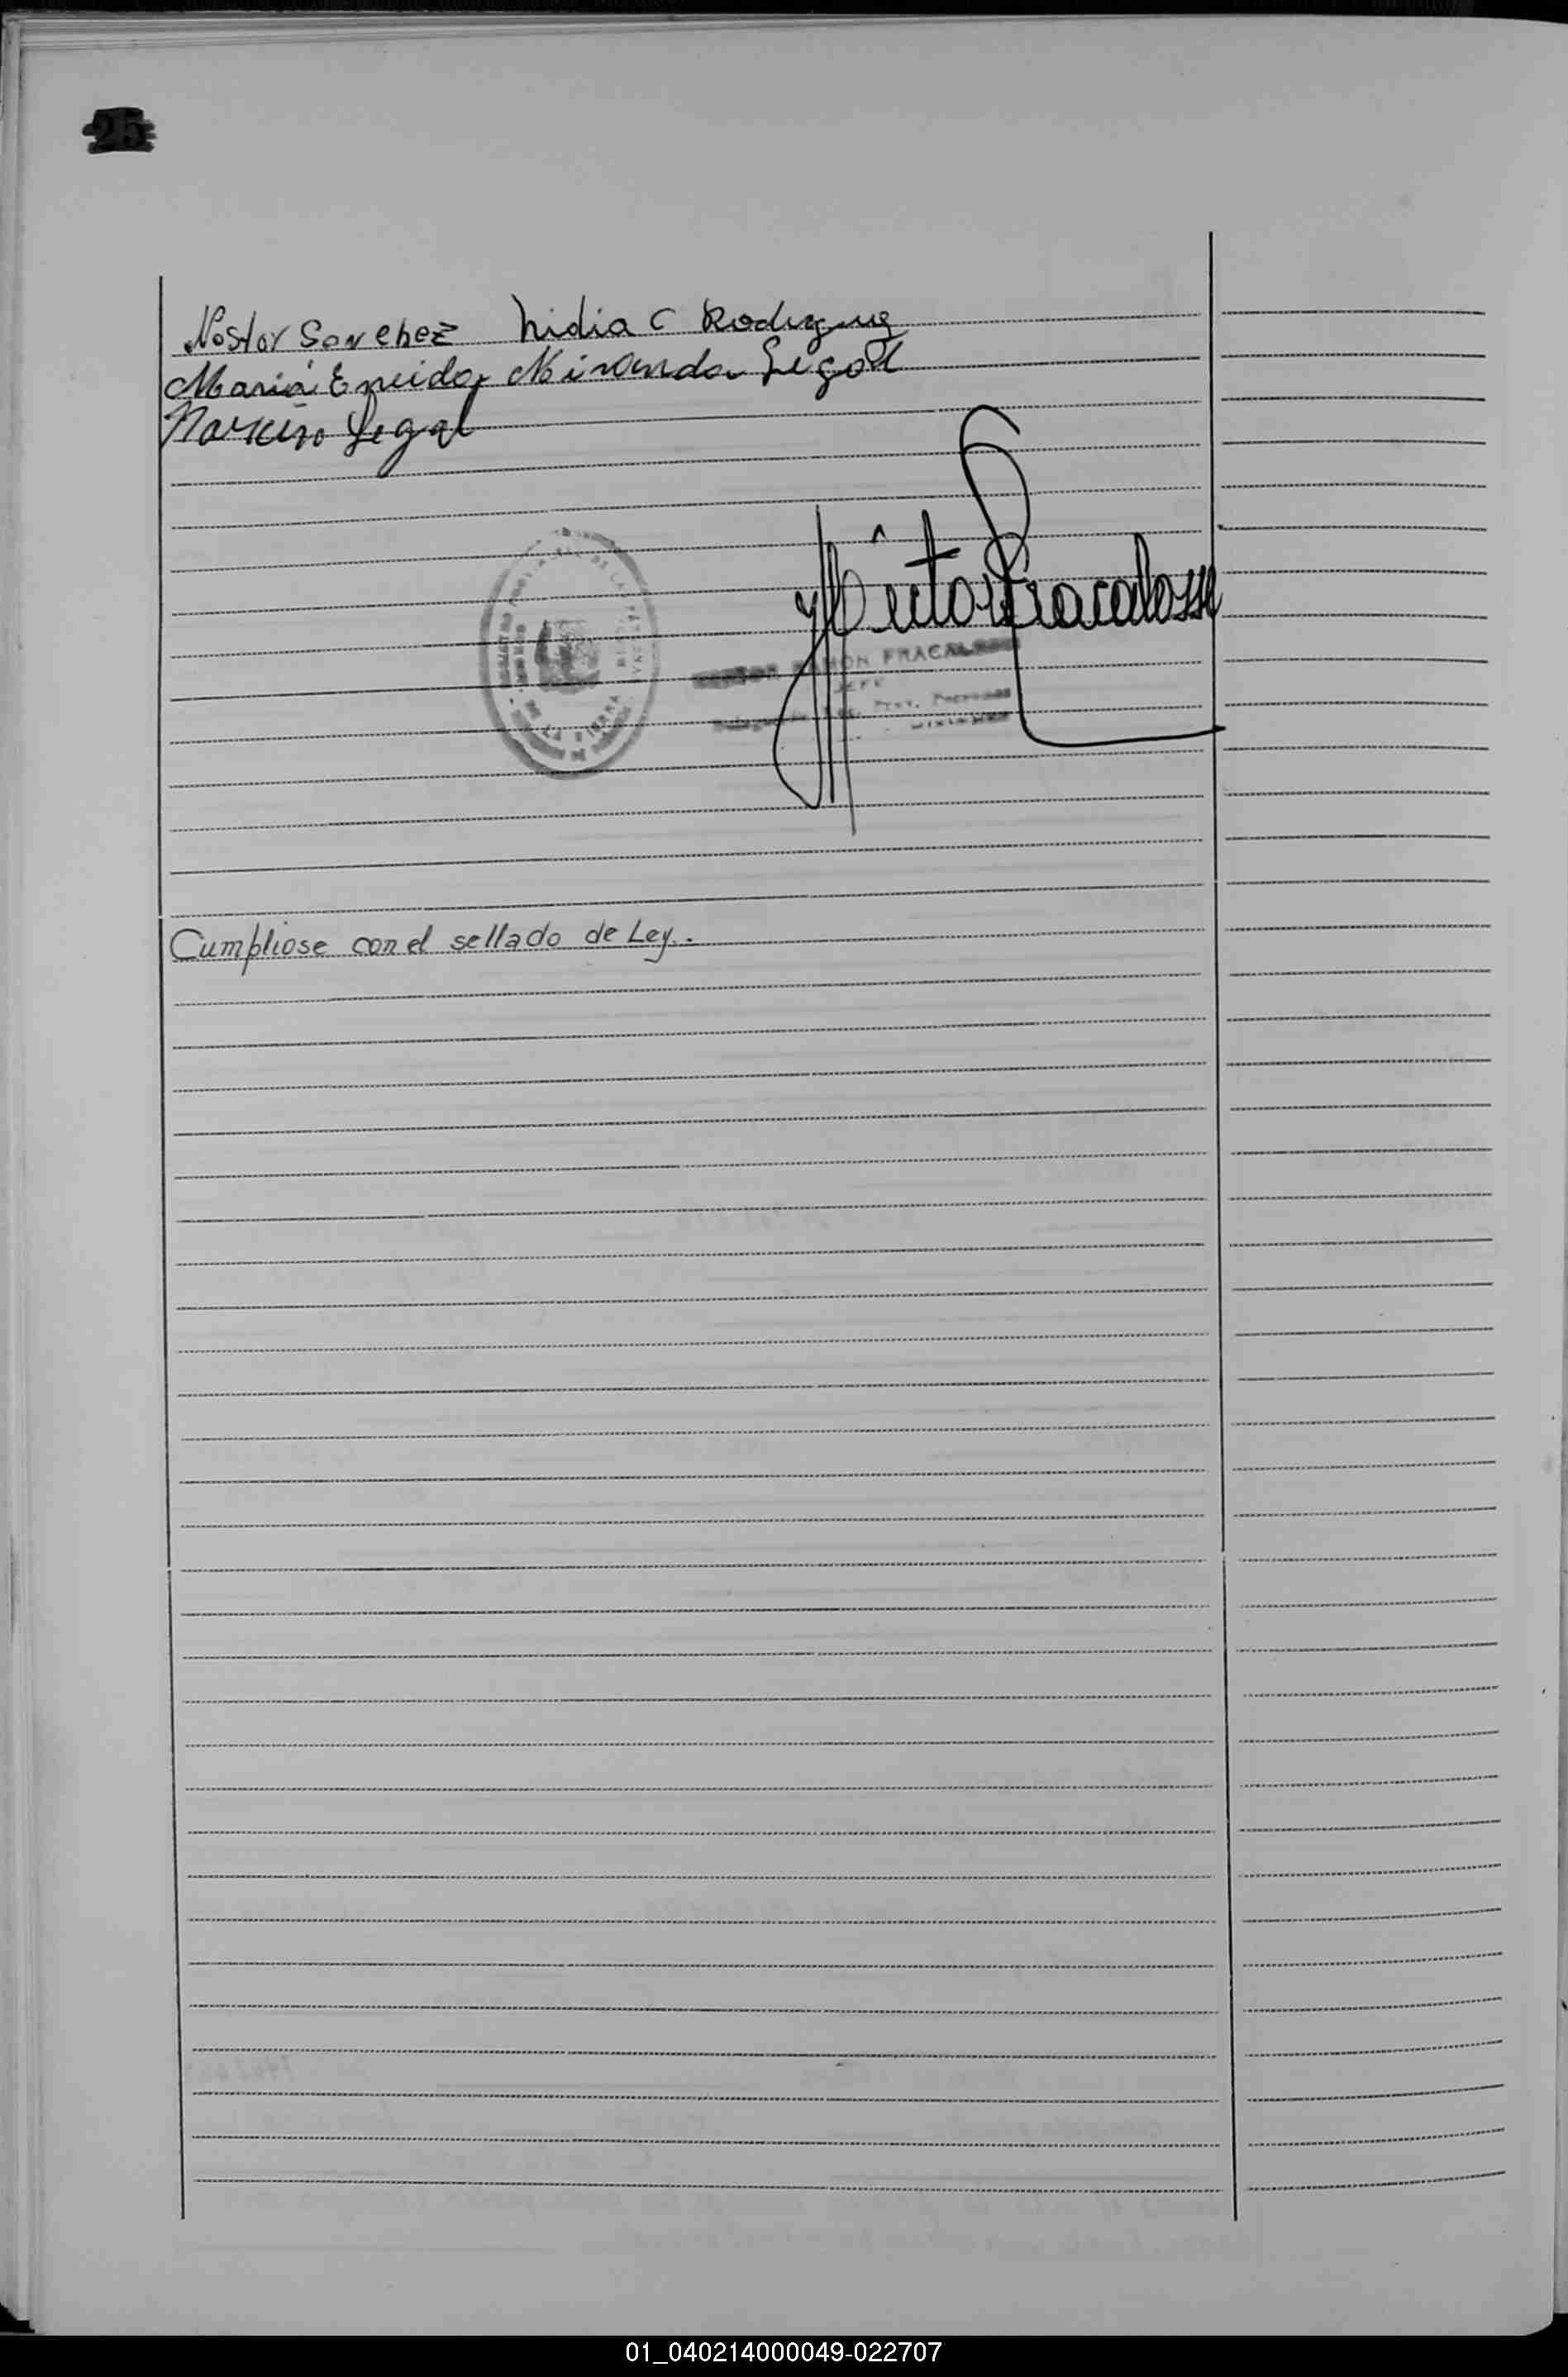 25
Nestor Sanchez Nidia C Rodriguez
Maria Eneida Miranda Legal
Narciso Legal
Hector R Fracalossi
HECTOR RAMON FRACALOSSI
JEFE
Cumpliose con el sellado de Ley.
01_040214000049-022707